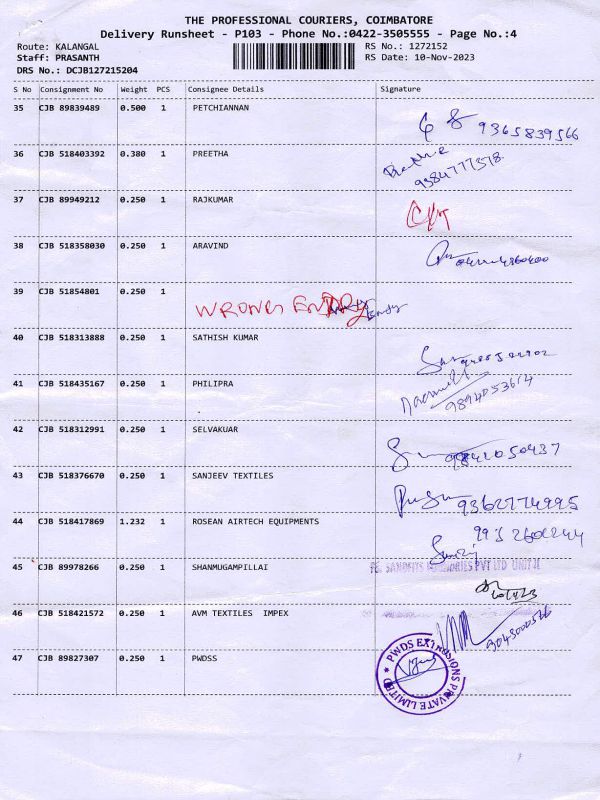 THE PROFESSIONAL COURIERS, COIMBATORE
Delivery Runsheet - P103 - Phone No.:0422-3505555 - Page No.:4
Route: KALANGAL RS No.: 1272152
Staff: PRASANTH RS Date: 10-Nov-2023
DRS No.: DCJB127215204
S No Consignment No Weight PCS Consignee Details Signature
35 CJB 89839489 0.500 1 PETCHIANNAN
9365839566
36 CJB 518403392 0.380 1 PREETHA
9384777378
37 CJB 89949212 0.250 1 RAJKUMAR
38 CJB 518358030 0.250 1 ARAVIND
39 CJB 51854801 0.250 1
WRONG ENTRY
40 CJB 518313888 0.250 1 SATHISH KUMAR
41 CJB 518435167 0.250 1 PHILIPRA
9894053614
42 CJB 518312991 0.250 1 SELVAKUAR
9842050437
43 CJB 518376670 0.250 1 SANJEEV TEXTILES
9362774995
44 CJB 518417869 1.232 1 ROSEAN AIRTECH EQUIPMENTS
45 CJB 89978266 0.250 1 SHANMUGAMPILLAI
PVT LTD UNIT II
46 CJB 518421572 0.250 1 AVM TEXTILES IMPEX
47 CJB 89827307 0.250 1 PWDSS
PWDS EXTRUSIONS PRIVATE LIMITED